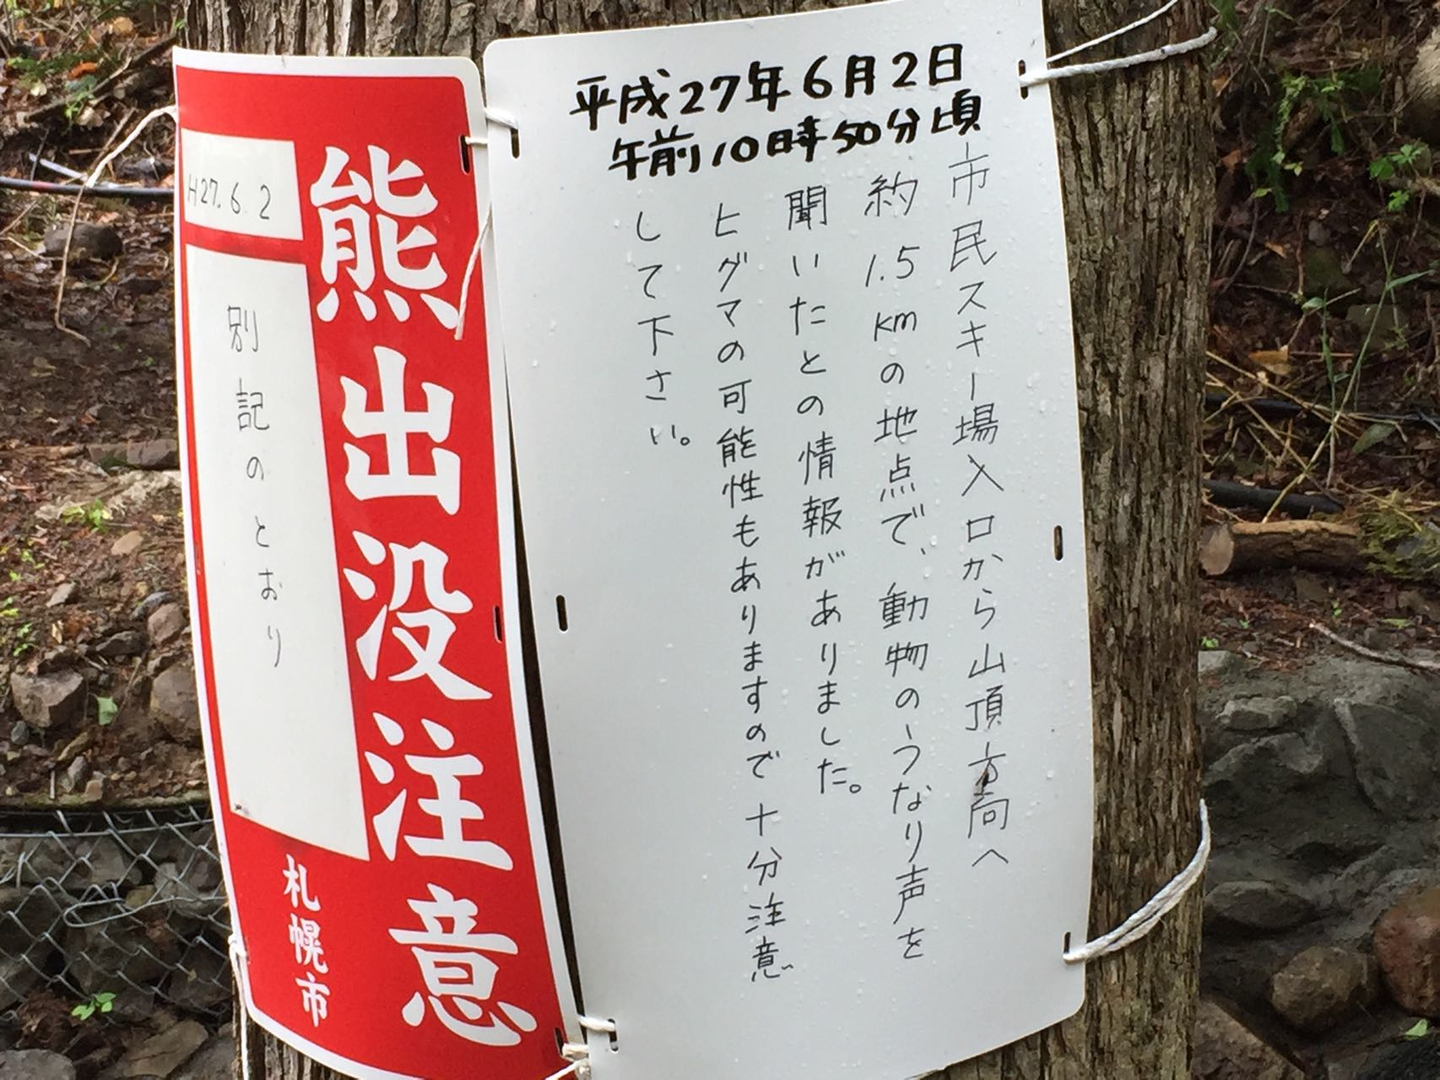 熊出没注意
H27.6.2
別記のとおり
札幌市
平成27年6月2日
午前10時50分頃
市民スキー場入口から山頂方向へ
約1.5kmの地点で、動物のうなり声を
聞いたとの情報がありました。
ヒグマの可能性もありますので十分注意
して下さい。